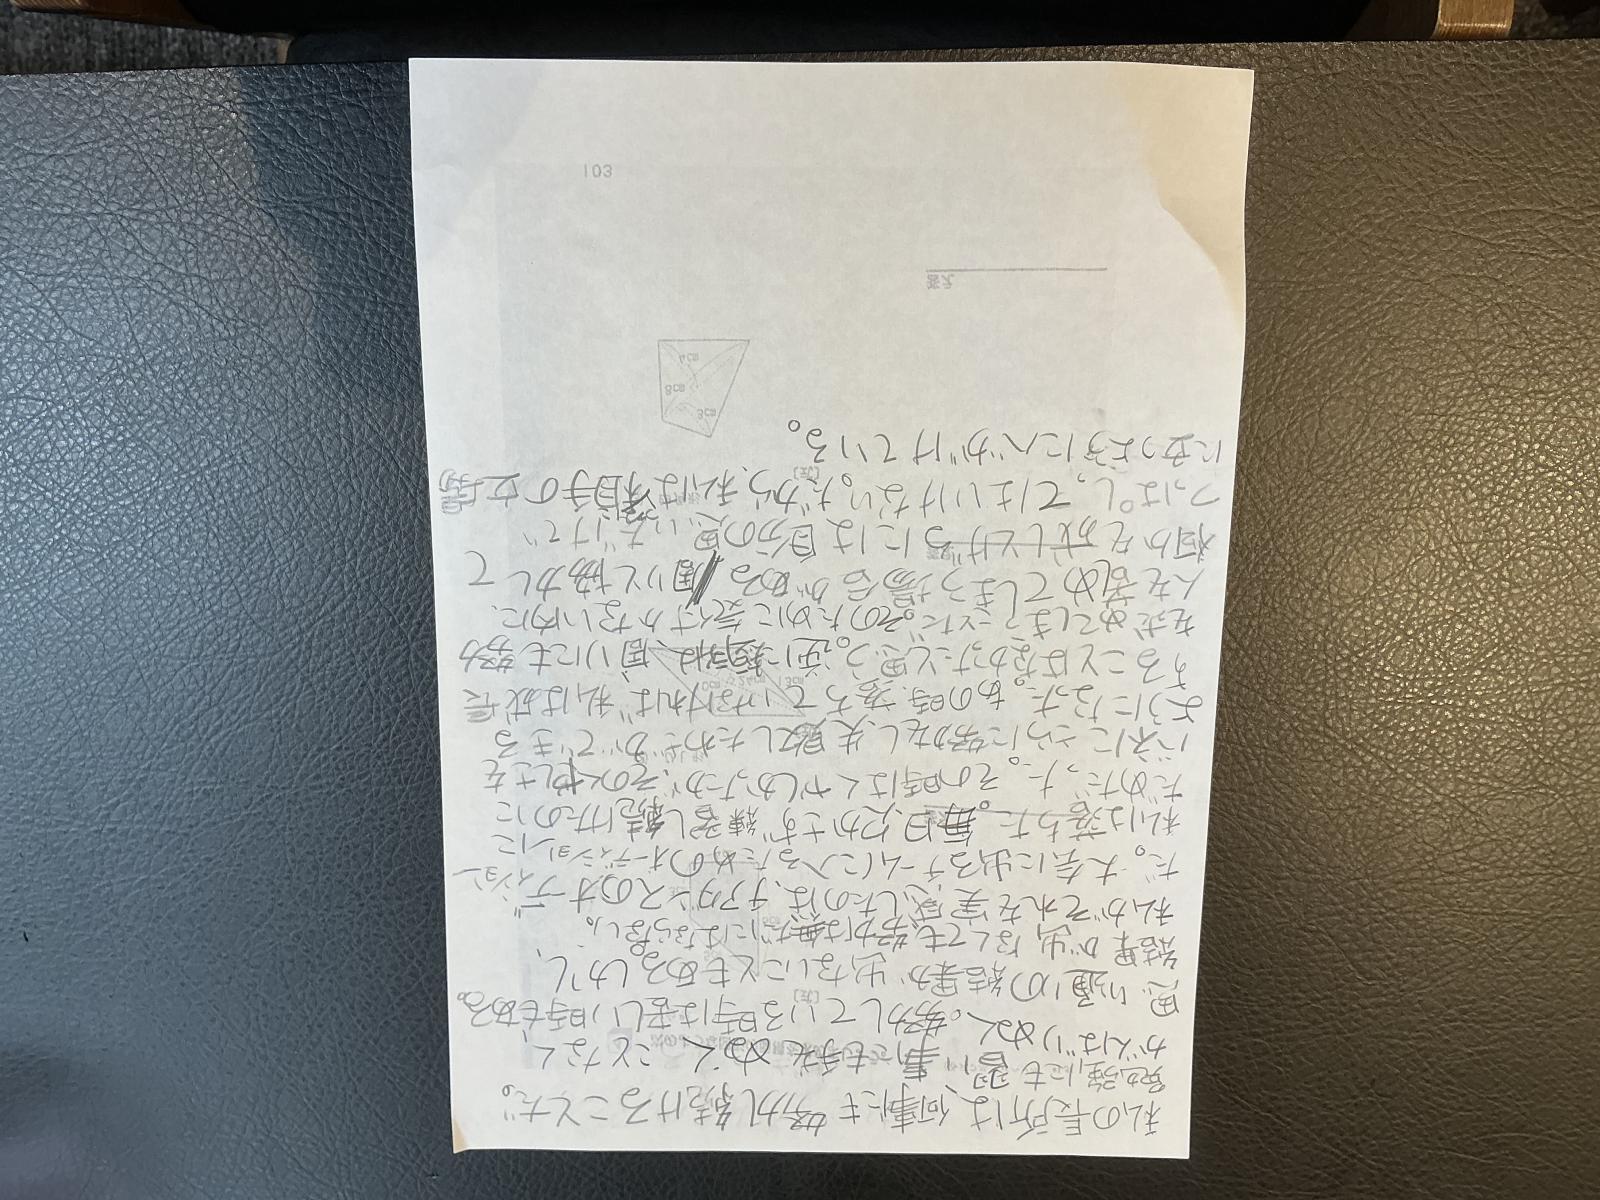 私の長所は、何事にも努力し続けることだ。
勉強にも習い事にも手をぬくことなく
がんばりぬく。努力している時は苦しい時もある。
思い通りの結果が出ないこともある。しかし、
結果が出なくても努力は無だにはならない。
私がそれを実感したのは、チアダンスのオーディション
だ。大会に出るチームに入るためのオーディションに
私は落ちた。毎日欠かさず練習し続けたのに
だめだった。その時はくやしかったが、そのくやしさを
バネにさらに努力をし、失敗したわざができる
ようになった。あの時、落ちていなければ私は成長
することはなかったと思う。逆に短所は、周りにも努力
を求めてしまうことだ。そのために気付かない内に、
人を責めてしまう場合がある。周りと協力して
何かを成しとげるには自分の思いだけで
つっぱしってはいけない。だから、私は相手の立場
に立つように心がけている。
103
答え
4cm
8cm
3cm
[式]
[式]
13cm